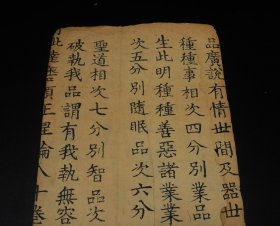 品廣說有情世間及器世
種種事相次四分別業品
生此明種種善惡諸業業
次五分別隨眠品次六分
聖道相次七分別智品次
破執我品謂有我執無容
毗達磨順正理論八十卷